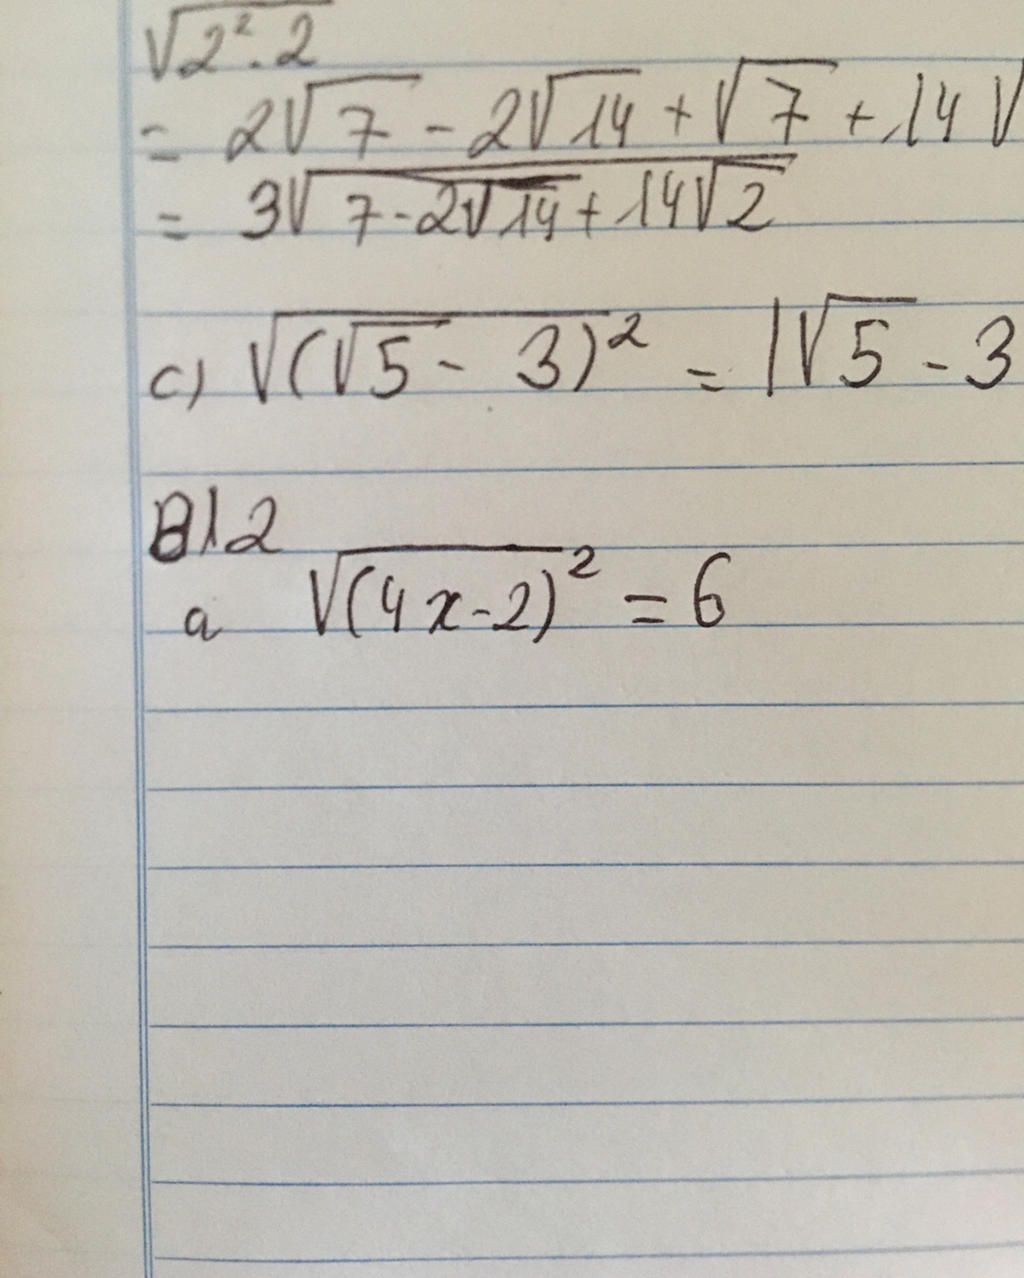 √2².2
= 2√7 - 2√14 + √7 + 14√
= 3√7-2√14+14√2
c) √(√5 - 3)² = |√5 - 3
B12
a √(4x-2)² = 6